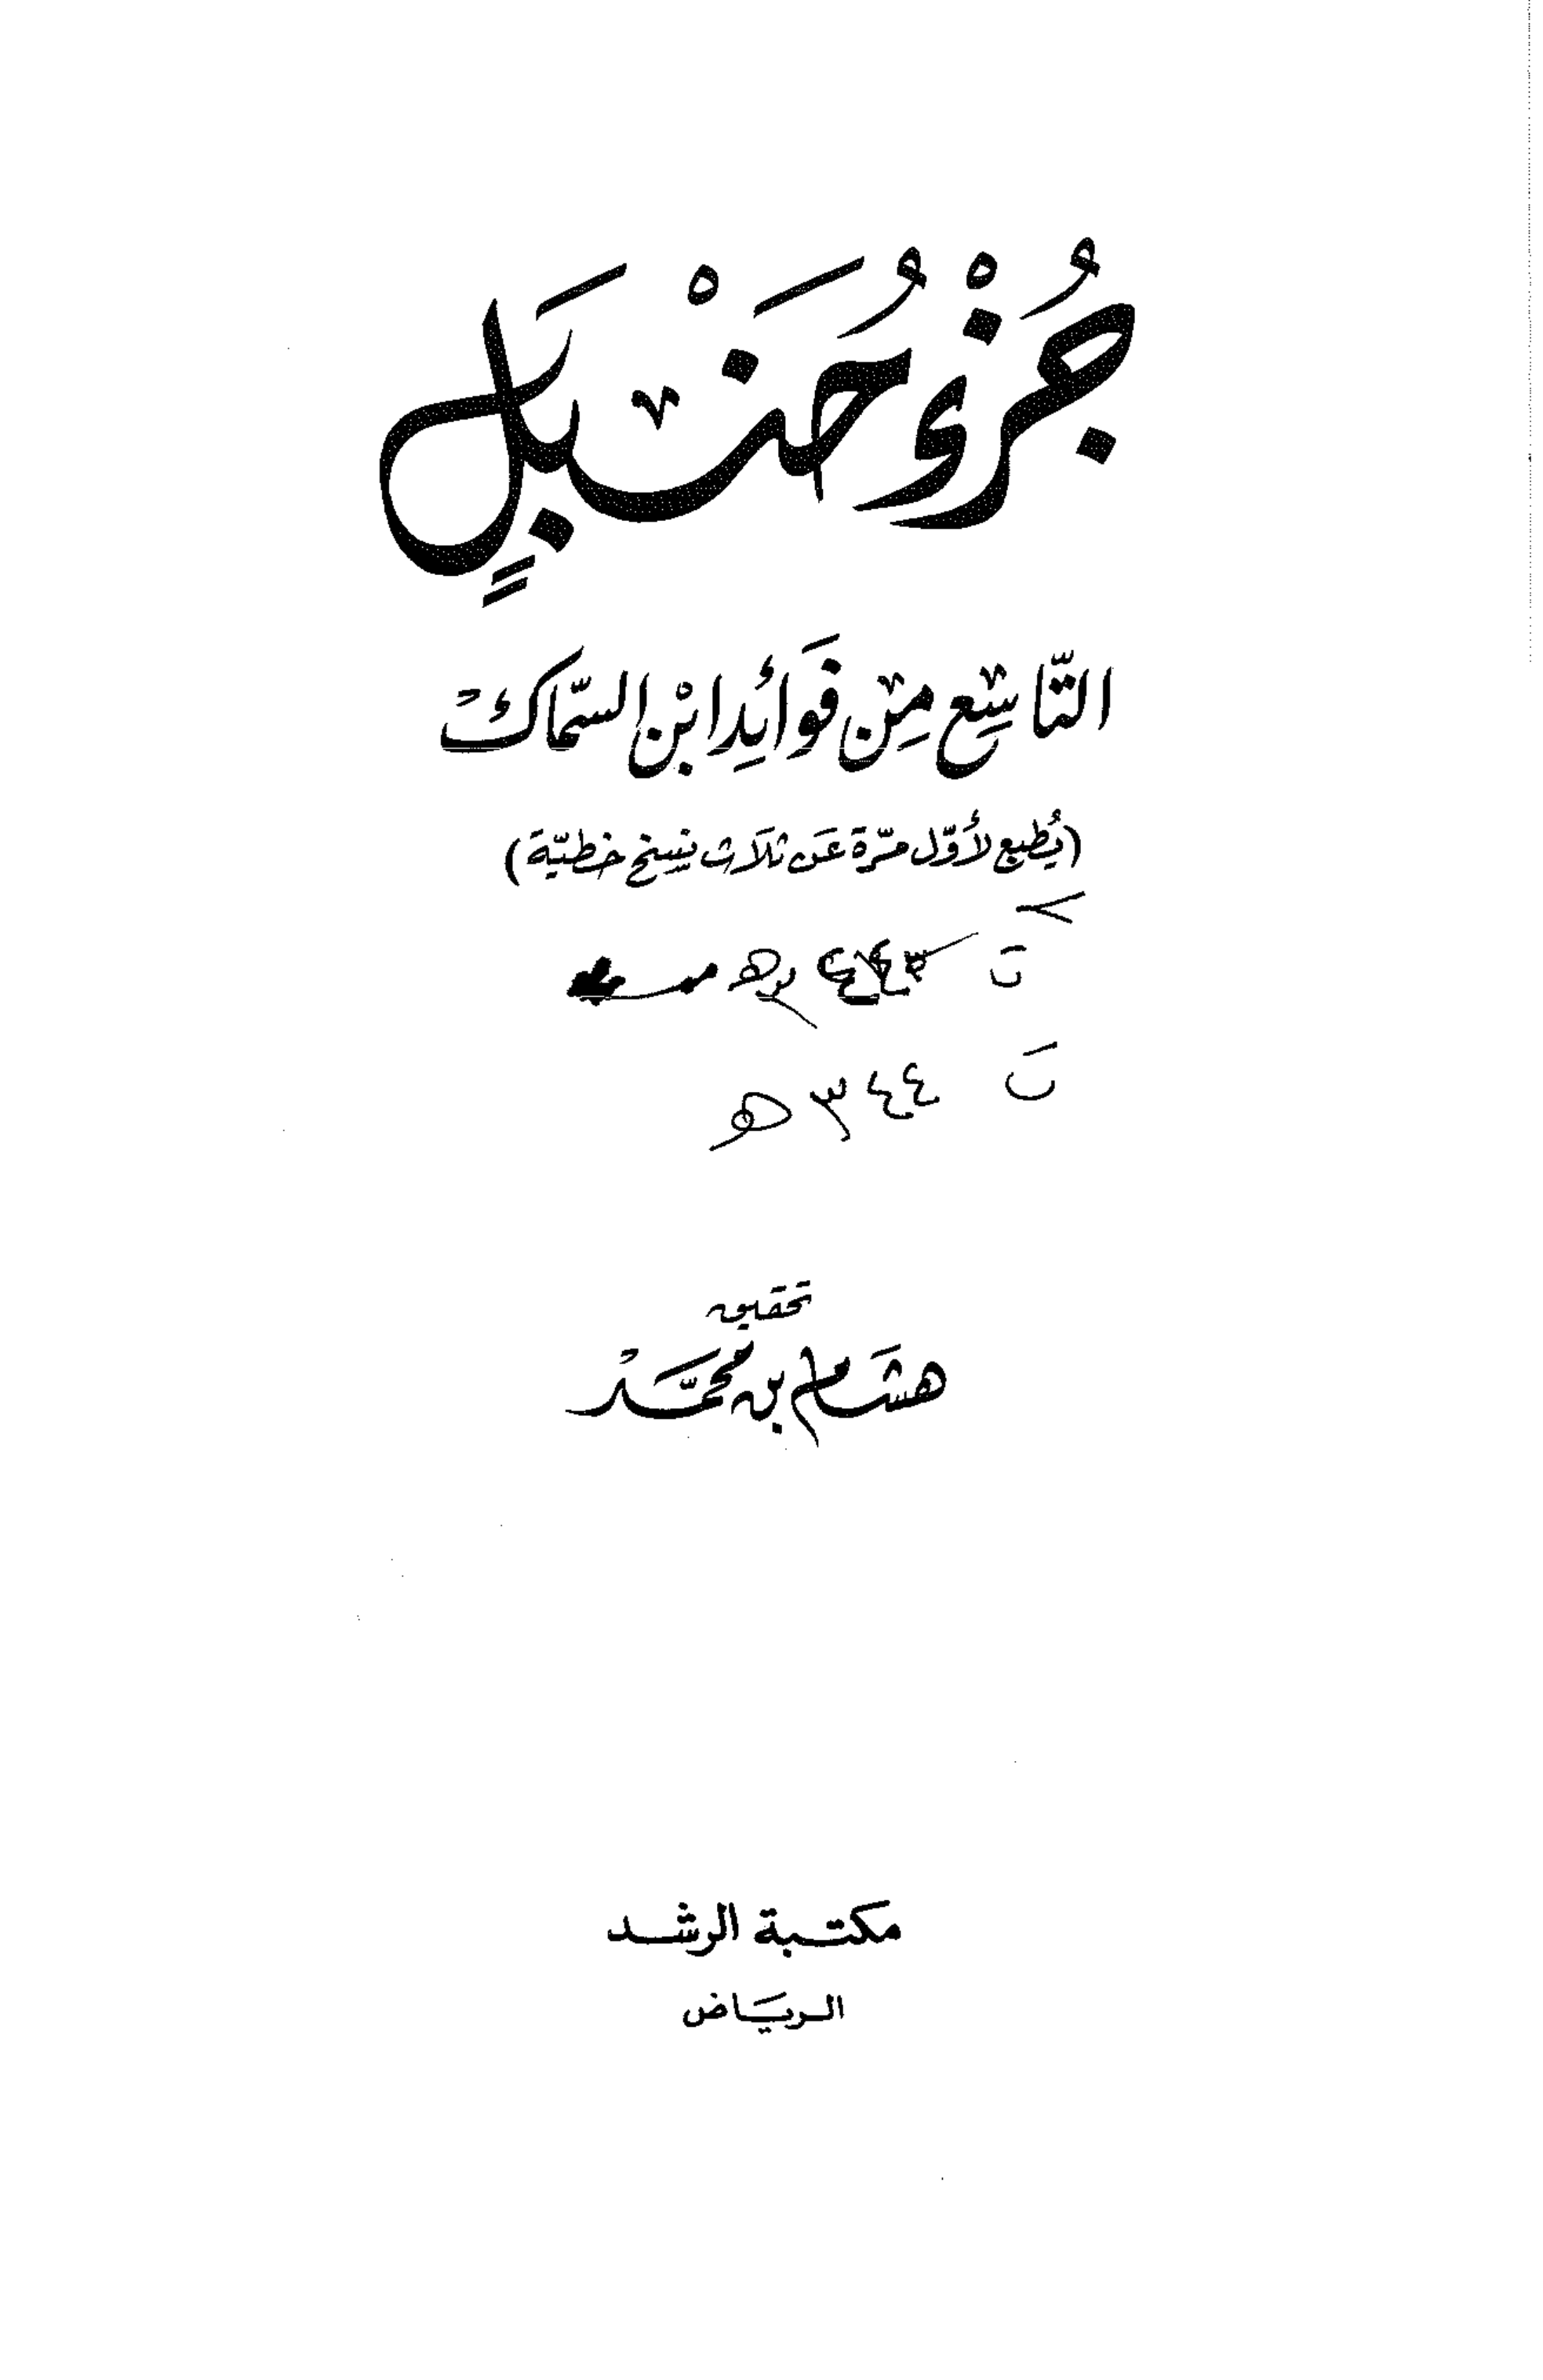 جُزْءُ حَنْبَلٍ
التَّاسِع مِن فَوَائِد ابْن السَّمَاك
(يُطبع لأَوَّل مَرَّة عَن ثلَاث نسِخ خطيَّة)
ت
ت ٣٤٤ هـ
تحقيق
هشَام بن محمَّد
مكتبة الرشد
الريَاض